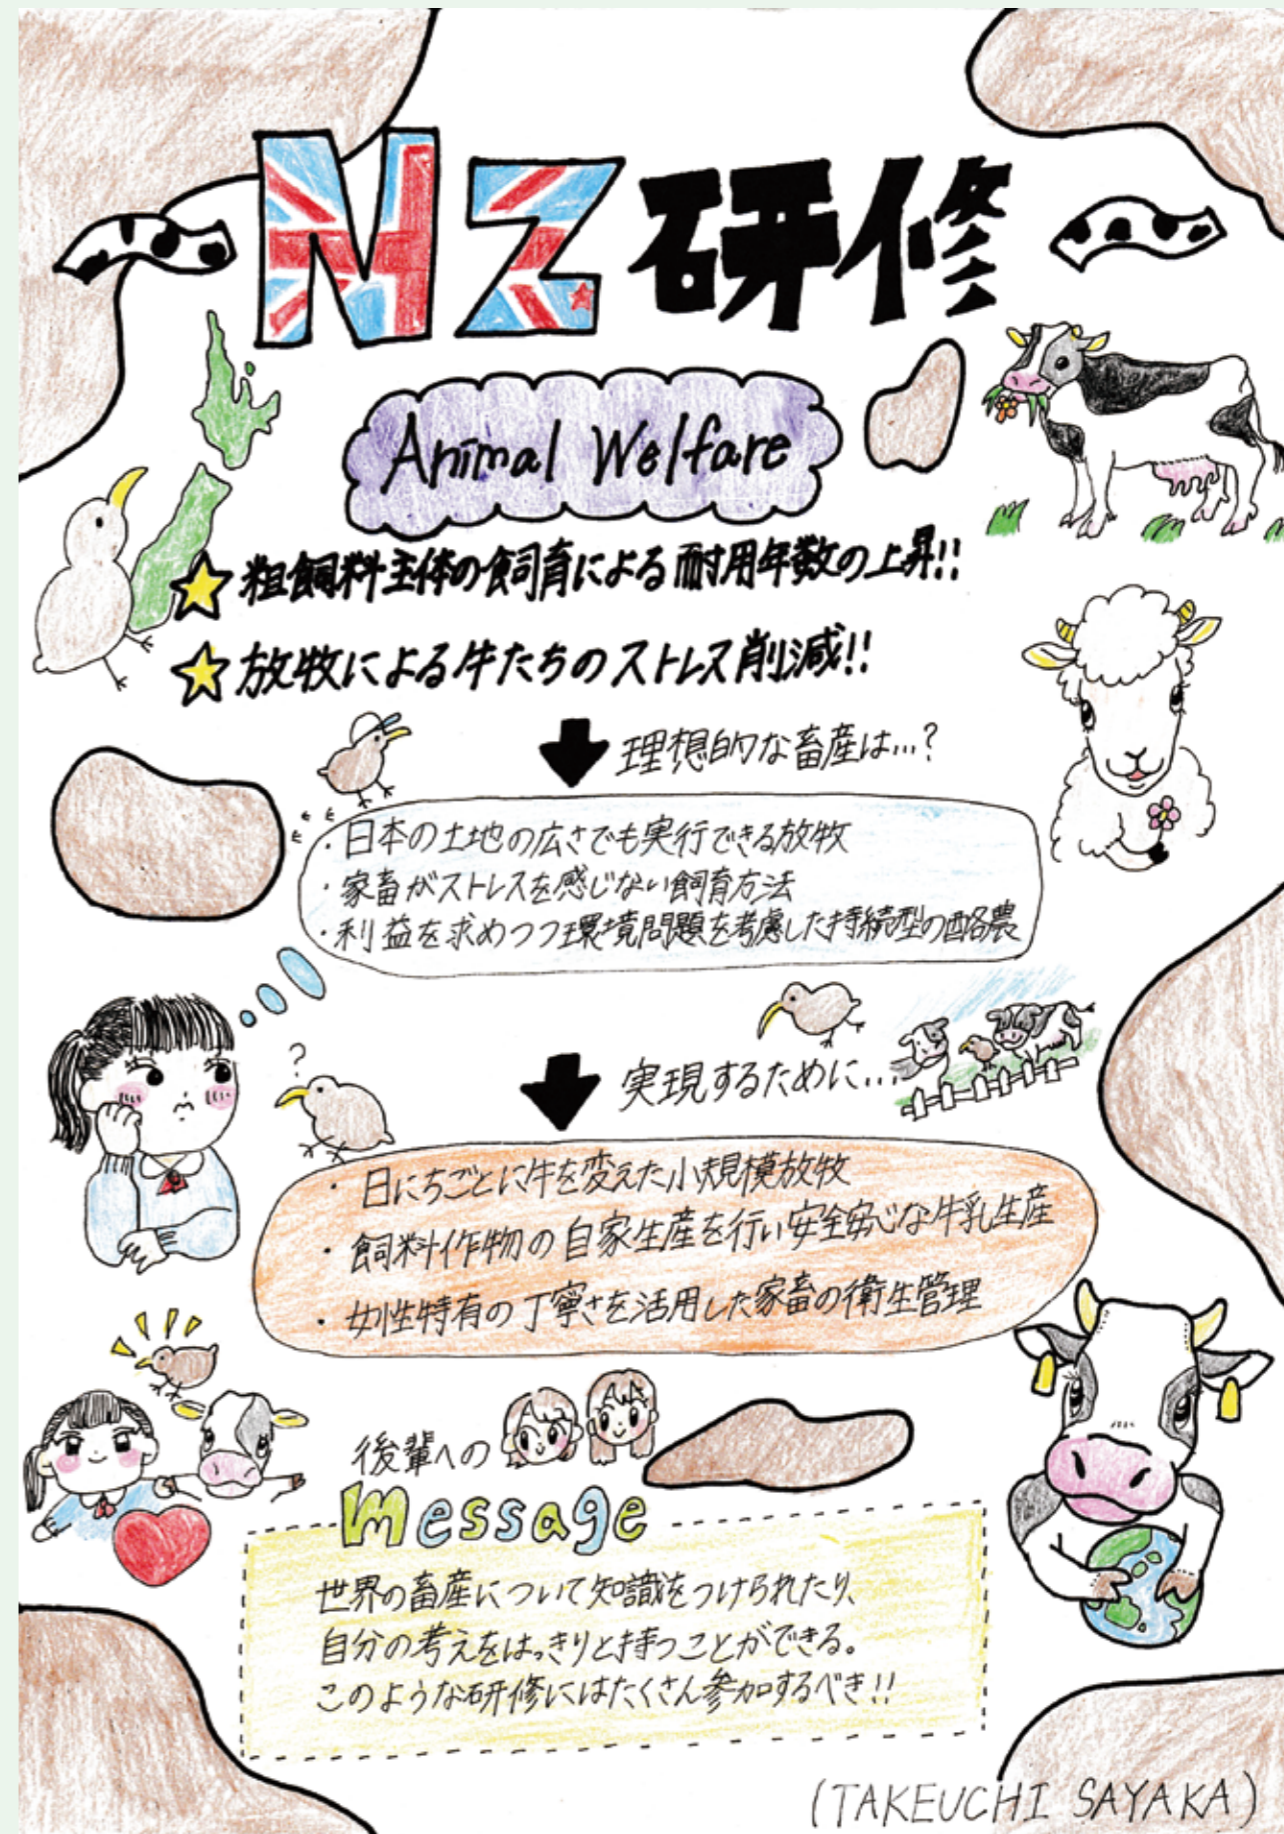 NZ研修
Animal Welfare
粗飼料主体の飼育による耐用年数の上昇!!
放牧による牛たちのストレス削減!!
理想的な畜産は…?
・日本の土地の広さでも実行できる放牧
・家畜がストレスを感じない飼育方法
・利益を求めつつ環境問題を考慮した持続型の酪農
?
実現するために…
・日にちごとに牛を変えた小規模放牧
・飼料作物の自家生産を行い安全安心な牛乳生産
・女性特有の丁寧さを活用した家畜の衛生管理
後輩への
Message
世界の畜産について知識をつけられたり、
自分の考えをはっきりと持つことができる。
このような研修にはたくさん参加するべき!!
(TAKEUCHI SAYAKA)